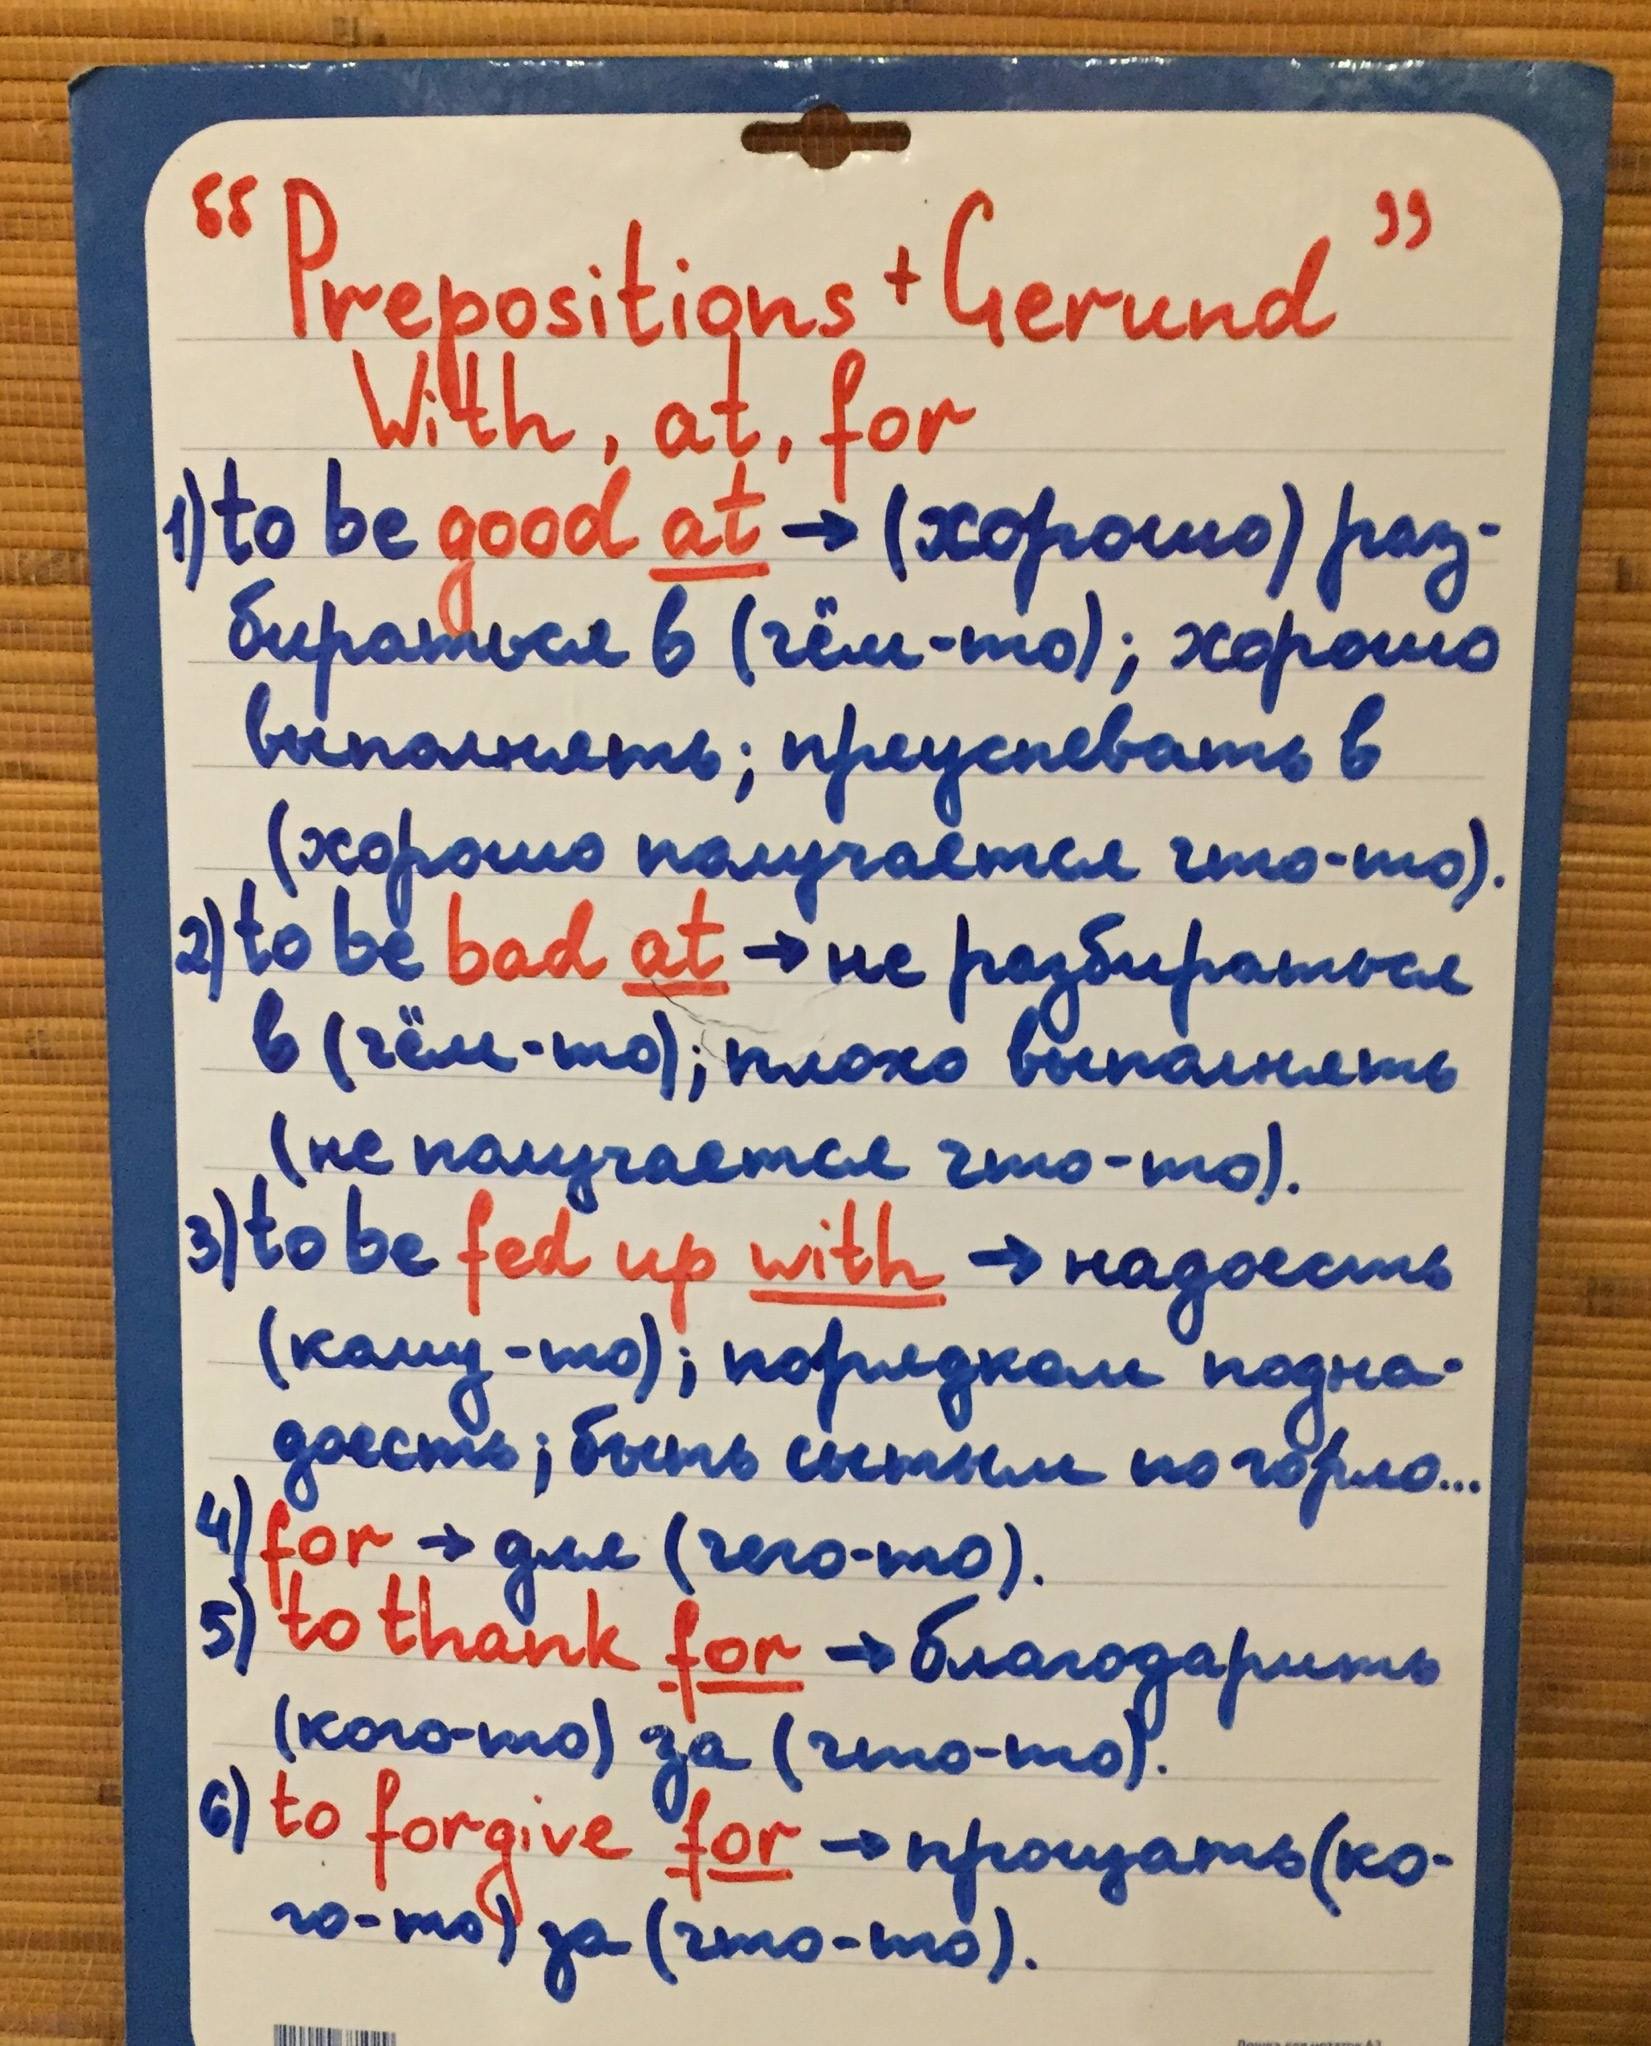 “Prepositions + Gerund”
With, at, for
1) to be good at → (хорошо) раз-
бираться в (чём-то); хорошо
выполнять; преуспевать в
(хорошо получается что-то).
2) to be bad at → не разбираться
в (чём-то); плохо выполнять
(не получается что-то).
3) to be fed up with → надоесть
(кому-то); порядком подна-
доесть; быть сытым по горло...
4) for → для (чего-то).
5) to thank for → благодарить
(кого-то) за (что-то).
6) to forgive for → прощать (ко-
го-то) за (что-то).